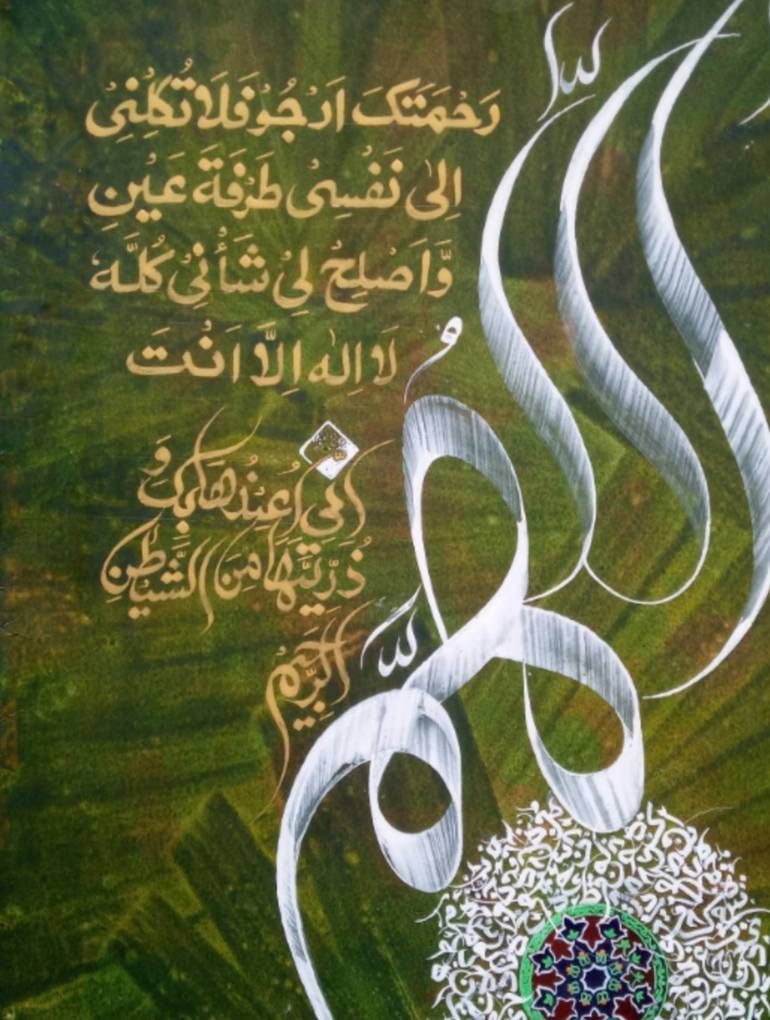 اللّٰهُمَّ
رَحْمَتَکَ اَرْجُوْ فَلَا تُکِلْنِیْ
اِلٰی نَفْسِیْ طَرْفَةَ عَیْنٍ
وَّاَصْلِحْ لِیْ شَأْنِیْ کُلَّهٗ
لَا اِلٰه اِلَّا اَنْتَ
اِنِّی اُعِیْذُهَا بِکَ وَ
ذُرِّیَّتَهَا مِنَ الشَّیْطٰنِ
الرَّجِیْمِ